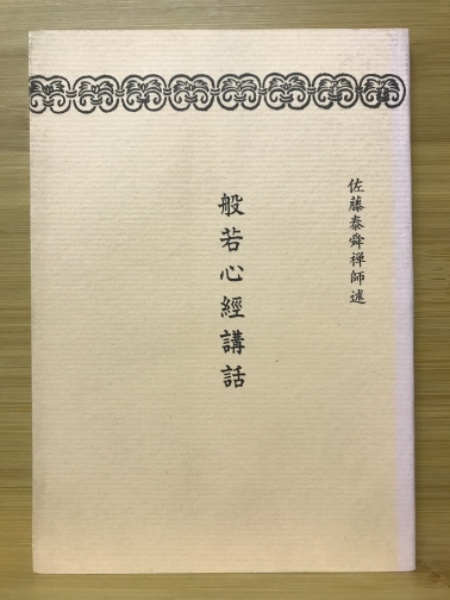 佐藤泰舜禅師述
般若心經講話